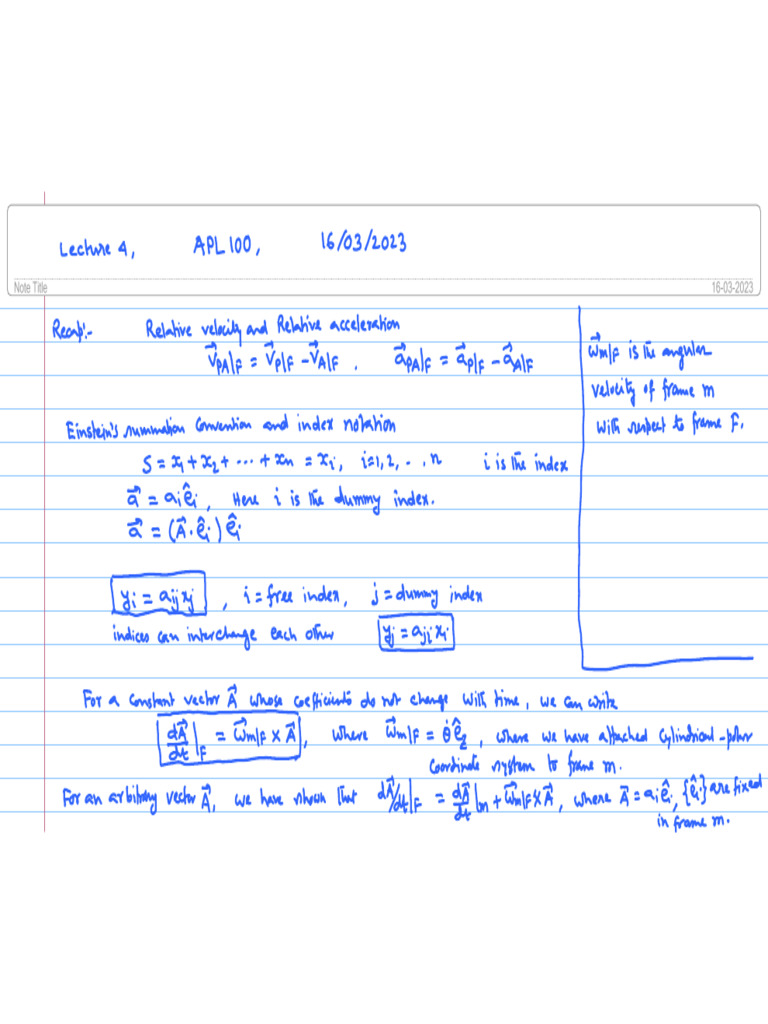 Lecture 4, APL 100, 16/03/2023
Note Title 16-03-2023
Recap:- Relative velocity and Relative acceleration
v⃗_PA|F = v⃗_P|F − v⃗_A|F . a⃗_PA|F = a⃗_P|F − a⃗_A|F
ω⃗_m|F is the angular
velocity of frame m
with respect to frame F.
Einstein's summation convention and index notation
S = x₁ + x₂ + ... + xₙ = xᵢ, i=1, 2, ..., n i is the index
a⃗ = aᵢ êᵢ, Here i is the dummy index.
a⃗ = (A⃗ · êᵢ) êᵢ
yᵢ = aᵢⱼ xⱼ , i = free index, j = dummy index
indices can interchange each other yⱼ = aⱼᵢ xᵢ
For a constant vector A⃗ whose coefficients do not change with time, we can write
dA⃗/dt|_F = ω⃗_m|F × A⃗, where ω⃗_m|F = θ̇ ê_z, where we have attached cylindrical-polar
coordinate system to frame m.
For an arbitrary vector A⃗, we have shown that dA⃗/dt|_F = dA⃗/dt|_m + ω⃗_m|F × A⃗, where A⃗ = aᵢ êᵢ, {êᵢ} are fixed
in frame m.